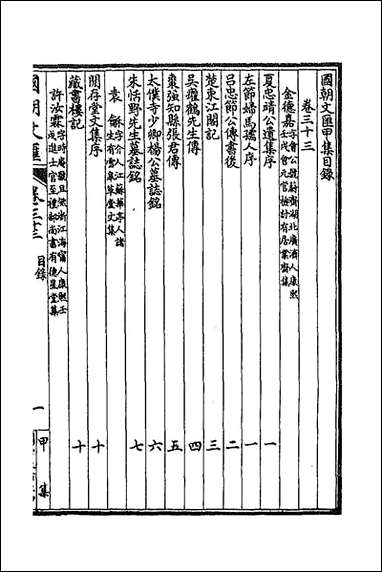 國朝文匯甲集目錄
卷三十三
金德嘉 字會公號蔚齋湖北廣濟人康熙壬戌會元官檢討有居業齋集
夏忠靖公遺集序 一
左節婦馬孺人序 一
呂忠節公傳書後 二
楚東江閣記 三
吳耀鶴先生傳 四
棗強知縣張君傳 五
太僕寺少卿楊公墓誌銘 六
朱恬野先生墓誌銘 七
袁龢 字介人江蘇華亭人諸生有雪阜草堂文集
閒存堂文集序 十
藏書樓記 十
許汝霖 字時庵號且然浙江海寧人康熙壬戌進士官至禮部尚書有德星堂集
國朝文匯 卷三十三 目錄 一 甲集